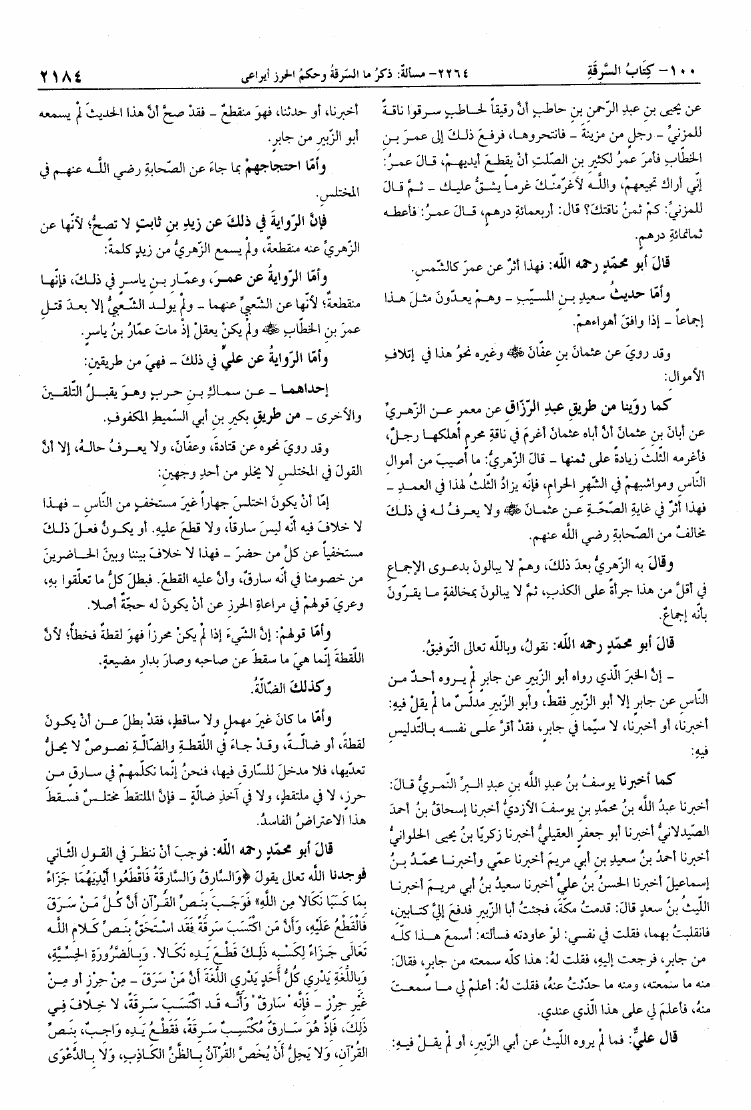 ١٠٠- كِتَابُ السَّرِقَةِ
٢٢٦٤- مسألةٌ: ذكرُ ما السَّرقةُ وحكمُ الحرزِ أيراعى
٢١٨٤
عن يحيى بنِ عبدِ الرّحمنِ بنِ حاطبٍ أنَّ رقيقاً لحاطبٍ سرقوا ناقةً
للمزنيِّ - رجلٍ من مزينةَ - فانتحروها، فرفعَ ذلكَ إلى عمرَ بنِ
الخطّابِ فأمرَ عمرُ لكثيرِ بنِ الصّلتِ أنْ يقطعَ أيديهمْ، قالَ عمرُ:
إنّي أراكَ تجيعهمْ، واللَّهِ لأغرّمنّكَ غرماً يشقُّ عليكَ - ثمَّ قالَ
للمزنيِّ: كمْ ثمنُ ناقتكَ؟ قال: أربعمائةِ درهمٍ، قالَ عمرُ: فأعطهِ
ثمانمائةِ درهمٍ.
قالَ أبو محمّدٍ رحمه الله: فهذا أثرٌ عن عمرَ كالشّمسِ.
وأمّا حديثُ سعيدِ بنِ المسيّبِ - وهمْ يعدّونَ مثلَ هذا
إجماعاً - إذا وافقَ أهواءهمْ.
وقد رويَ عن عثمانَ بنِ عفّانَ ﷺ وغيره نحوُ هذا في إتلافِ
الأموالِ:
كما روّينا من طريقِ عبدِ الرّزاقِ عن معمرٍ عن الزّهريِّ
عن أبانَ بنِ عثمانَ أنَّ أباه عثمانَ أغرمَ في ناقةِ محرمٍ أهلكها رجلٌ،
فأغرمه الثّلثَ زيادةً على ثمنها - قالَ الزّهريُّ: ما أصيبَ من أموالِ
النّاسِ ومواشيهمْ في الشّهرِ الحرامِ، فإنّه يزادُ الثّلثُ لهذا في العمدِ -
فهذا أثرٌ في غايةِ الصّحّةِ عن عثمانَ ﷺ ولا يعرفُ له في ذلكَ
مخالفٌ من الصّحابةِ رضي الله عنهم.
وقالَ به الزّهريُّ بعدَ ذلكَ، وهمْ لا يبالونَ بدعوى الإجماعِ
في أقلَّ من هذا جرأةً على الكذبِ، ثمَّ لا يبالونَ بمخالفةِ ما يقرّونَ
بأنّه إجماعٌ.
قالَ أبو محمّدٍ رحمه الله: نقولُ، وباللَّه تعالى التّوفيقُ.
- إنَّ الخبرَ الّذي رواه أبو الزّبيرِ عن جابرٍ لم يروه أحدٌ من
النّاسِ عن جابرٍ إلا أبو الزّبيرِ فقطْ، وأبو الزّبيرِ مدلّسٌ ما لم يقلْ فيهِ:
أخبرنا، أو أخبرني، لا سيّما في جابرٍ، فقد أقرَّ على نفسه بالتّدليسِ
فيهِ:
كما أخبرنا يوسفُ بنُ عبدِ اللَّه بنِ عبدِ البرِّ النّمريُّ قالَ:
أخبرنا عبدُ اللَّه بنُ محمّدِ بنِ يوسفَ الأزديُّ أخبرنا إسحاقُ بنُ أحمدَ
الصّيدلانيُّ أخبرنا أبو جعفرٍ العقيليُّ أخبرنا زكريّا بنُ يحيى الحلوانيُّ
أخبرنا أحمدُ بنُ سعيدِ بنِ أبي مريمَ أخبرنا عمّي وأخبرنا محمّدُ بنُ
إسماعيلَ أخبرنا الحسنُ بنُ عليٍّ أخبرنا سعيدُ بنُ أبي مريمَ أخبرنا
اللّيثُ بنُ سعدٍ قالَ: قدمتُ مكّةَ، فجئتُ أبا الزّبيرِ فدفعَ إليَّ كتابينِ،
فانقلبتُ بهما، فقلت في نفسي: لوْ عاودته فسألته: أسمعَ هذا كلّه
من جابرٍ، فرجعت إليهِ، فقلت لهُ: هذا كلّه سمعته من جابرٍ، فقالَ:
منه ما سمعته، ومنه ما حدّثتُ عنهُ، فقلت لهُ: أعلمْ لي ما سمعتَ
منهُ، فأعلمَ لي على هذا الّذي عندي.
قالَ عليٌّ: فما لم يروه اللّيثُ عن أبي الزّبيرِ، أو لم يقلْ فيهِ:
أخبرنا، أو حدثنا، فهوَ منقطعٌ - فقدْ صحَّ أنَّ هذا الحديثَ لم يسمعه
أبو الزّبيرِ من جابرٍ.
وأمّا احتجاجهمْ بما جاءَ عن الصّحابةِ رضي اللَّه عنهم في
المختلسِ.
فإنَّ الرّوايةَ في ذلكَ عن زيدِ بنِ ثابتٍ لا تصحُّ؛ لأنّها عن
الزّهريِّ عنه منقطعةٌ، ولم يسمع الزّهريُّ من زيدٍ كلمةً:
وأمّا الرّوايةُ عن عمرَ، وعمّارِ بنِ ياسرٍ في ذلكَ، فإنّها
منقطعةٌ؛ لأنّها عن الشّعبيِّ عنهما - ولم يولد الشّعبيُّ إلا بعدَ قتلِ
عمرَ بنِ الخطّابِ ﷺ ولم يكنْ يعقلُ إذْ ماتَ عمّارُ بنُ ياسرٍ.
وأمّا الرّوايةُ عن عليٍّ في ذلكَ - فهيَ من طريقينِ:
إحداهما - عن سماكِ بنِ حربٍ وهوَ يقبلُ التّلقينَ
والأخرى - من طريقِ بكيرِ بنِ أبي السّميطِ المكفوفِ.
وقد رويَ نحوه عن قتادةَ، وعفّانَ، ولا يعرفُ حالهُ، إلا أنَّ
القولَ في المختلسِ لا يخلو من أحدِ وجهينِ:
إمّا أنْ يكونَ اختلسَ جهاراً غيرَ مستخفٍ من النّاسِ - فهذا
لا خلافَ فيه أنّه ليسَ سارقاً، ولا قطعَ عليهِ. أو يكونُ فعلَ ذلكَ
مستخفياً عن كلِّ من حضرَ - فهذا لا خلافَ بيننا وبينَ الحاضرينَ
من خصومنا في أنّه سارقٌ، وأنَّ عليه القطعَ. فبطلَ كلُّ ما تعلّقوا بهِ،
وعريَ قولهمْ في مراعاةِ الحرزِ عن أنْ يكونَ له حجّةٌ أصلا.
وأمّا قولهمْ: إنَّ الشّيءَ إذا لم يكنْ محرزاً فهوَ لقطةٌ فخطأٌ؛ لأنَّ
اللّقطةَ إنّما هيَ ما سقطَ عن صاحبه وصارَ بدارِ مضيعةٍ.
وكذلكَ الضّالّةُ.
وأمّا ما كانَ غيرَ مهملٍ ولا ساقطٍ، فقدْ بطلَ عن أنْ يكونَ
لقطةً، أو ضالّةً، وقدْ جاءَ في اللّقطةِ والضّالّةِ نصوصٌ لا يحلُّ
تعدّيها، فلا مدخلَ للسّارقِ فيها، فنحنُ إنّما نكلّمهمْ في سارقٍ من
حرزٍ، لا في ملتقطٍ، ولا في آخذِ ضالّةٍ - فإنَّ الملتقطَ مختلسٌ فسقطَ
هذا الاعتراضُ الفاسدُ.
قالَ أبو محمّدٍ رحمه الله: فوجبَ أنْ ننظرَ في القولِ الثّاني
فوجدنا اللَّه تعالى يقولُ ﴿وَالسَّارِقُ وَالسَّارِقَةُ فَاقْطَعُوا أَيْدِيَهُمَا جَزَاءً
بِمَا كَسَبَا نَكَالا مِنَ اللَّهِ﴾ فَوَجَبَ بِنَصِّ الْقُرْآنِ أَنَّ كُلَّ مَنْ سَرَقَ
فَالْقَطْعُ عَلَيْهِ، وَأَنَّ مَن اكْتَسَبَ سَرِقَةً فَقَد اسْتَحَقَّ بِنَصِّ كَلامِ اللَّه
تَعَالَى جَزَاءً لِكَسْبِهِ ذَلِكَ قَطْعَ يَدِهِ نَكَالا. وَبِالضَّرُورَةِ الْحِسِّيَّةِ،
وَبِاللُّغَةِ يَدْرِي كُلُّ أَحَدٍ يَدْرِي اللُّغَةَ أَنَّ مَنْ سَرَقَ - مِنْ حِرْزٍ أو مِنْ
غَيْرِ حِرْزٍ - فَإِنَّه "سَارِقٌ" وَأَنَّه قَد اكْتَسَبَ سَرِقَةً، لا خِلافَ فِي
ذَلِكَ، فَإِذْ هُوَ سَارِقٌ مُكْتَسِبٌ سَرِقَةً، فَقَطْعُ يَدِهِ وَاجِبٌ، بِنَصِّ
الْقُرْآنِ، وَلا يَحِلُّ أَنْ يُخَصَّ الْقُرْآنُ بِالظَّنِّ الْكَاذِبِ، وَلا بِالدَّعْوَى